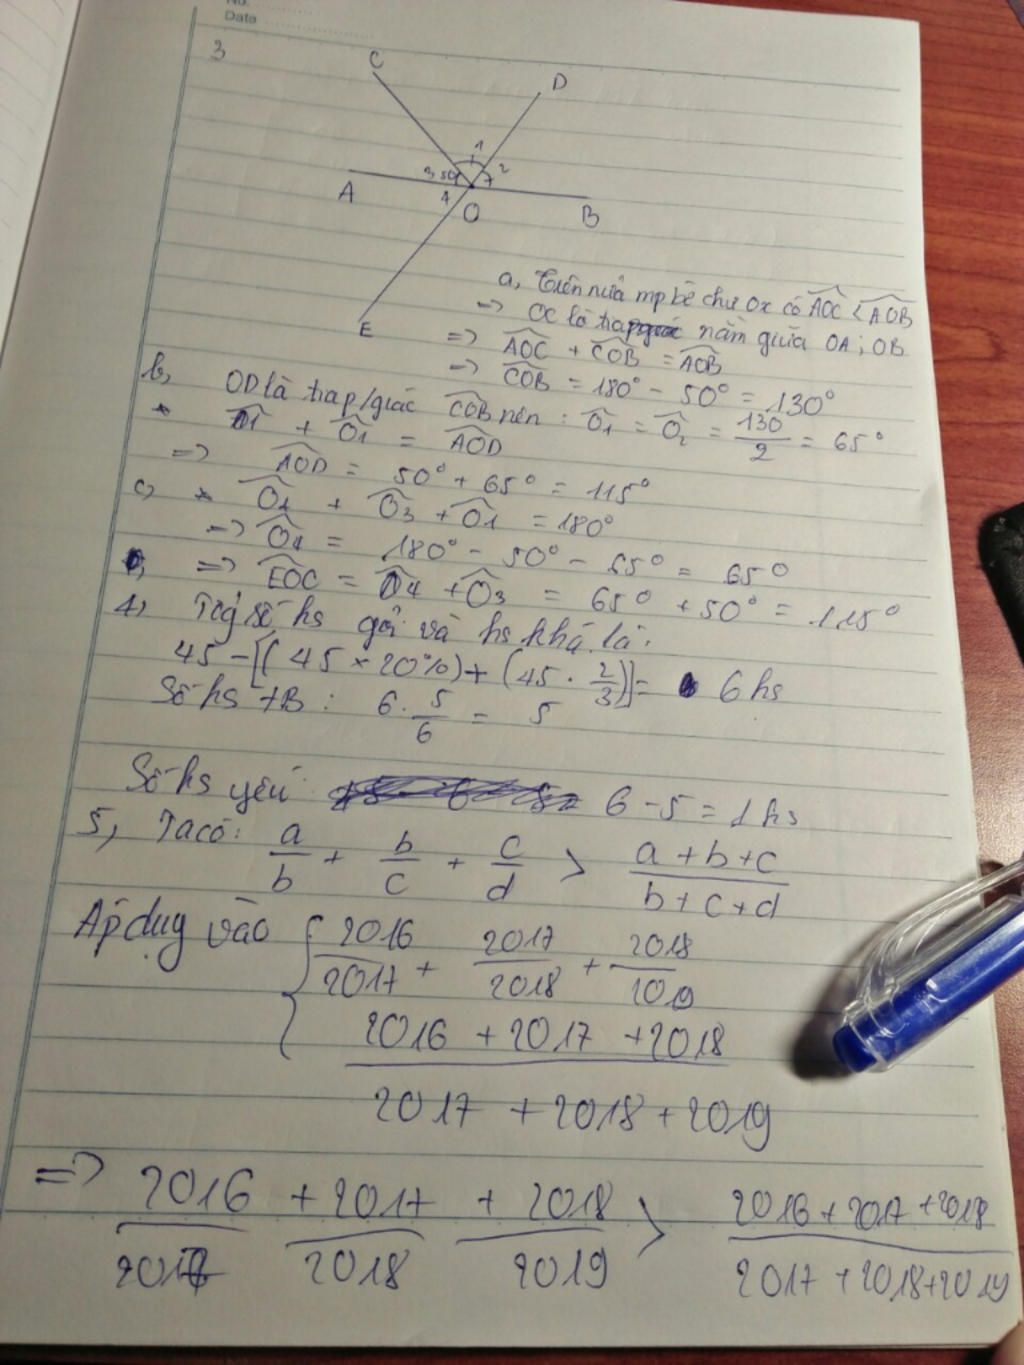 No. ..........
Data ....................
3
C
D
1
2
3 50
A
4
O
B
E
a, Trên nửa mp bờ chứ Ox có AOC < AOB
=> OC là tia nằm giữa OA; OB
=> AOC + COB = AOB
=> COB = 180° - 50° = 130°
b, OD là tia p/giác COB nên: O1 = O2 = 130/2 = 65°
* + O1 = AOD
=> AOD = 50° + 65° = 115°
c) * O4 + O3 + O1 = 180°
=> O4 = 180° - 50° - 65° = 65°
=> EOC = O4 + O3 = 65° + 50° = 115°
4, số hs giỏi và hs khá là:
45 - [(45 × 20%) + (45 . 2/3)] = 6 hs
Số hs TB: 6 . 5/6 = 5
Số hs yếu 6 - 5 = 1 hs
5, Ta có: a/b + b/c + c/d > a + b + c / b + c + d
Áp dụg vào { 2016/2017 + 2017/2018 + 2018/2019
2016 + 2017 + 2018
2017 + 2018 + 2019
=> 2016/2017 + 2017/2018 + 2018/2019 > 2016 + 2017 + 2018 / 2017 + 2018 + 2019